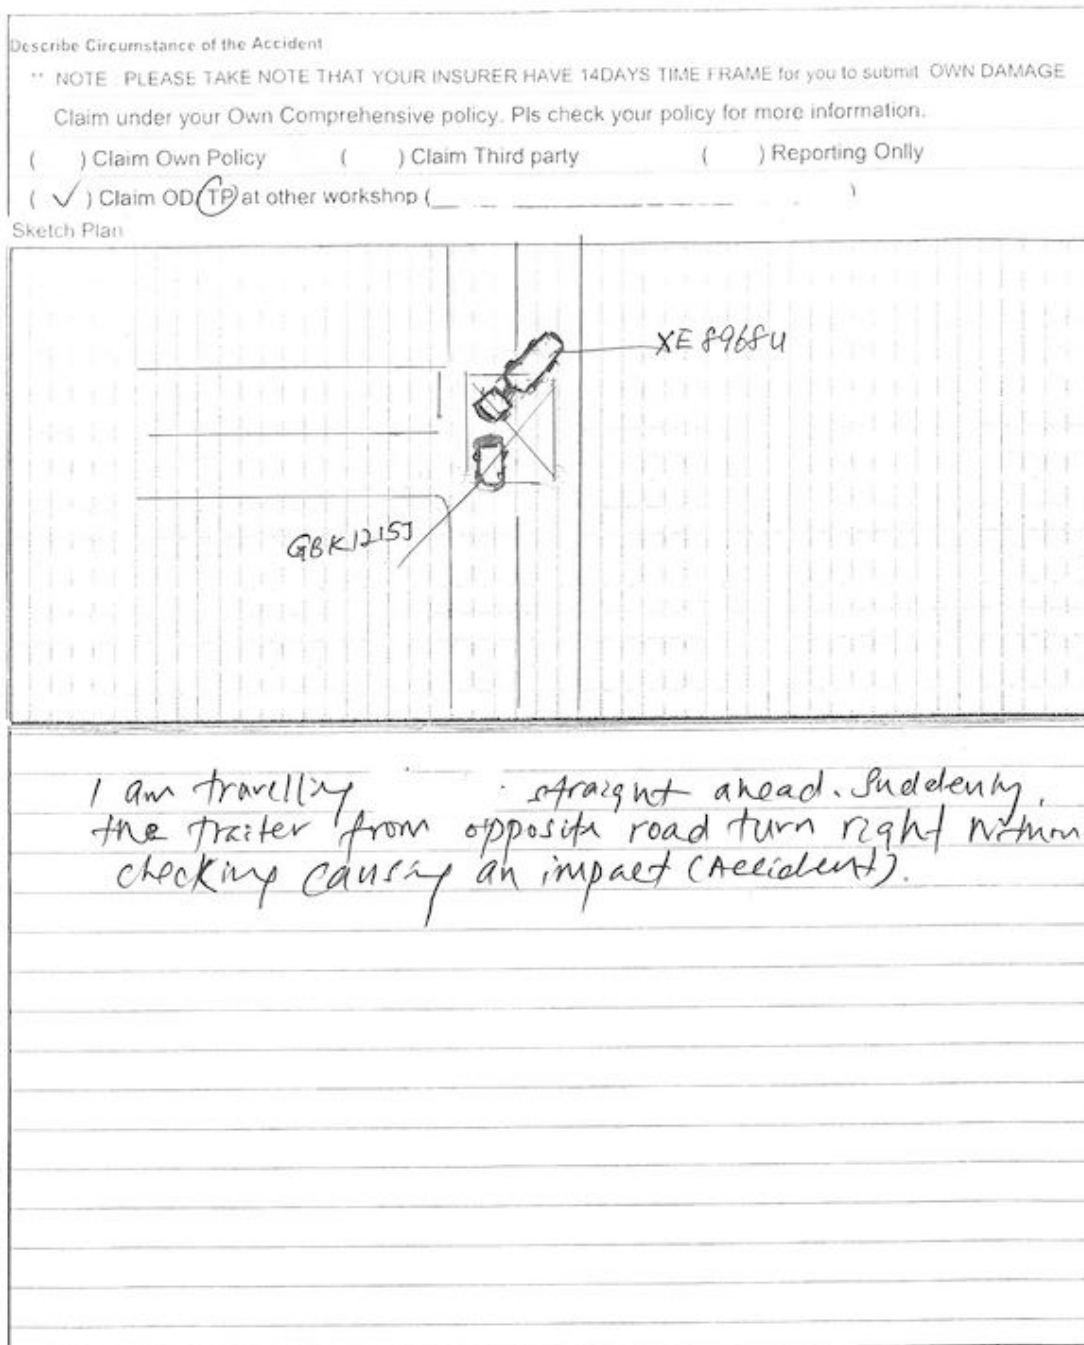 Describe Circumstance of the Accident
** NOTE : PLEASE TAKE NOTE THAT YOUR INSURER HAVE 14DAYS TIME FRAME for you to submit OWN DAMAGE
Claim under your Own Comprehensive policy. Pls check your policy for more information.
( ) Claim Own Policy ( ) Claim Third party ( ) Reporting Onlly
( ✓ ) Claim OD/TP at other workshop ( )
Sketch Plan
XE8968U
GBK1215J
I am travelling straight ahead. Suddenly,
the trailer from opposite road turn right
checking causing an impact (Accident).